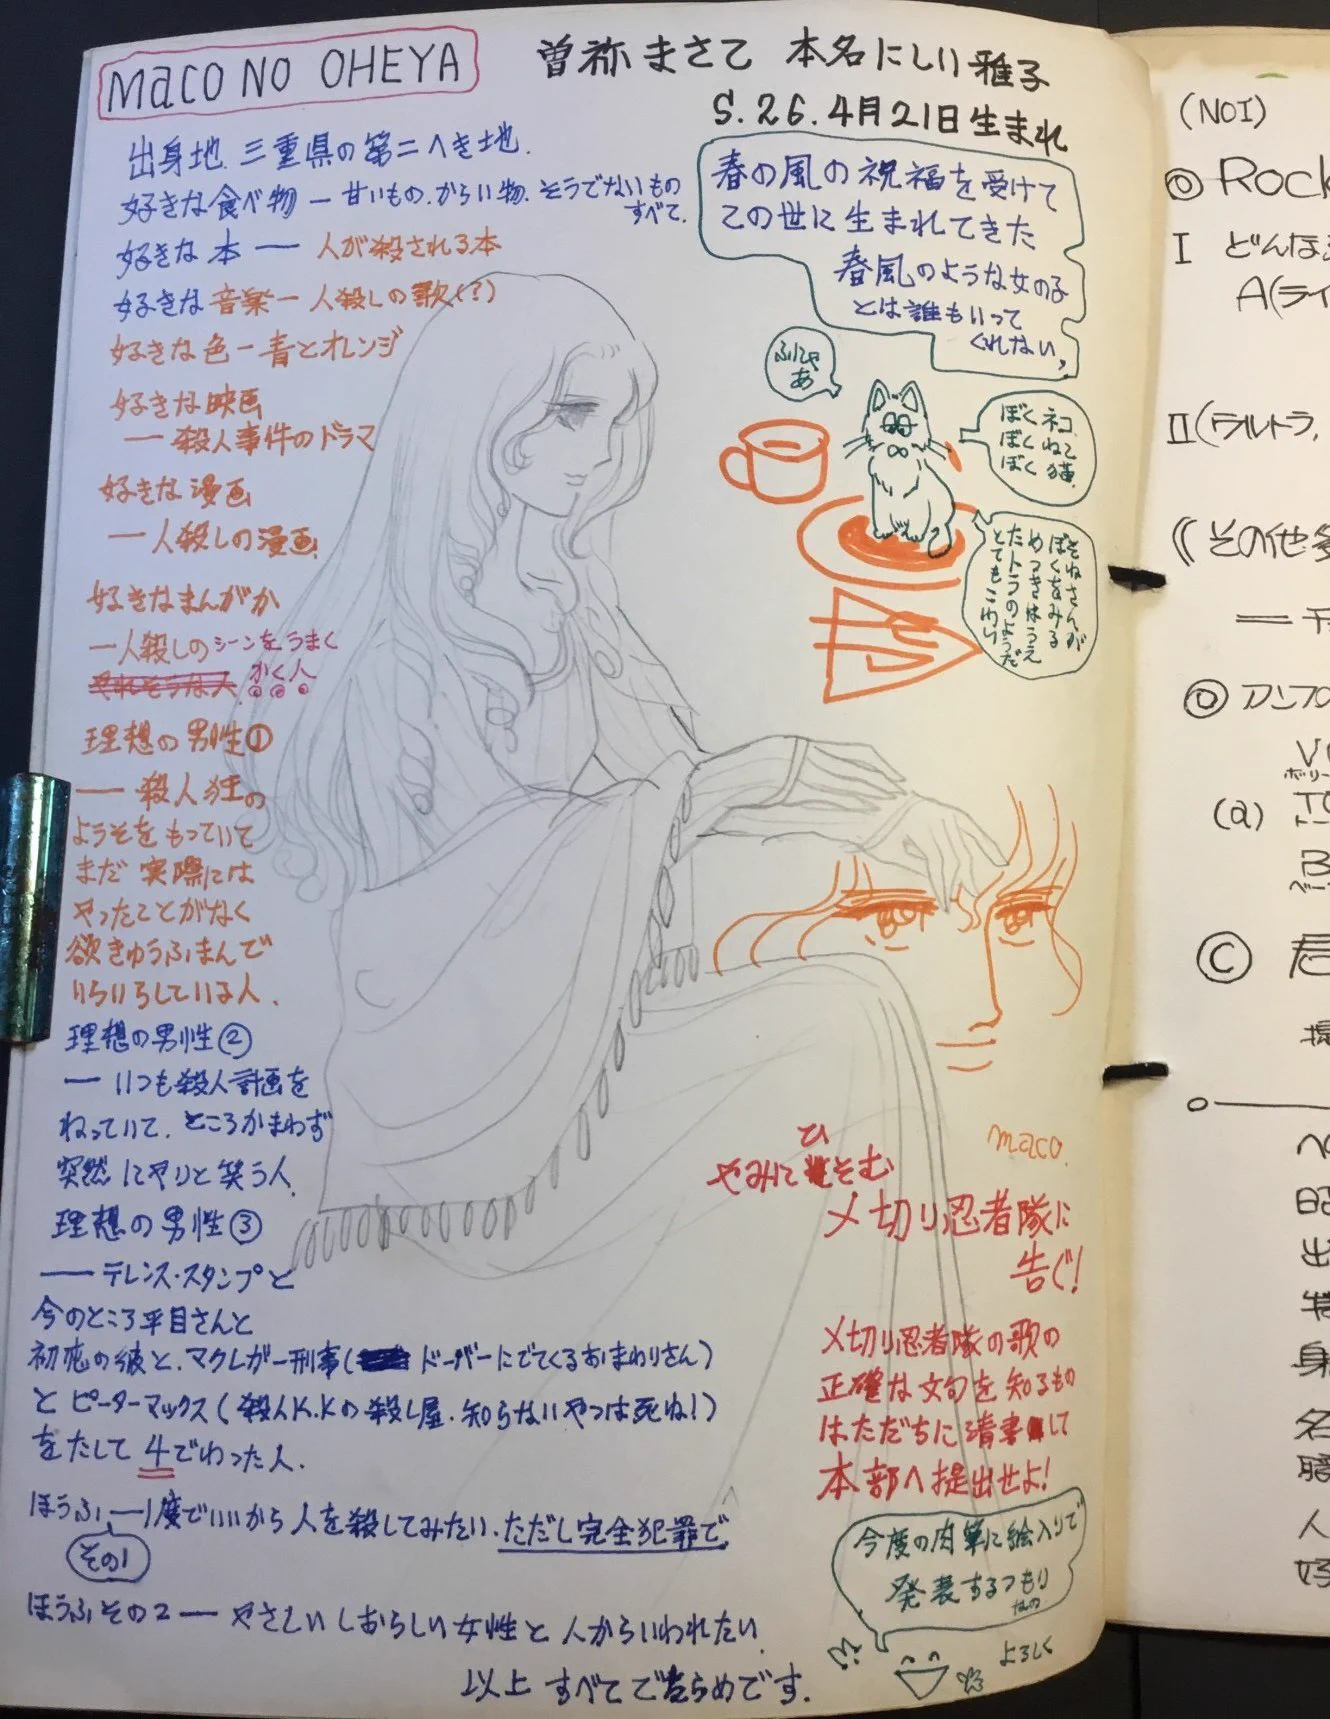 Maco NO OHEYA
曽祢まさこ 本名にしい雅子
S.26.4月21日生まれ
出身地. 三重県の第二へき地.
好きな食べ物 ー 甘いもの.からい物.そうでないもの
すべて.
好きな本 ー 人が殺される本
好きな音楽ー人殺しの歌(?)
好きな色ー青とオレンジ
好きな映画
ー殺人事件のドラマ
好きな漫画
ー人殺しの漫画.
好きなまんがか
ー人殺しのシーンをうまく
かく人
理想の男性①
ー殺人狂の
ようそをもっていて
まだ実際には
やったことがなく
欲きゅうふまんで
いらいらしている人.
理想の男性②
ー いつも殺人計画を
ねっていて.ところかまわず
突然にヤリと笑う人.
理想の男性③
ーテレンス・スタンプと
今のところ平目さんと
初恋の彼と.マクレガー刑事(ドーバーにでてくるおまわりさん)
とピーターマックス(殺人K.Kの殺し屋.知らないやつは死ね!)
をたして4でわった人.
ほうふー1度でいいから人を殺してみたい.ただし完全犯罪で
その1
ほうふその2ー やさしいしおらしい女性と人からいわれたい.
以上すべてでたらめです.
春の風の祝福を受けて
この世に生まれてきた
春風のような女の子
とは誰もいって
くれない,
ふにゃ
あ
ぼくネコ.
ぼくねこ
ぼく猫.
そねさんが
ぼくをみる
めつきはうえ
たトラのようだ
とてもこわい
maco.
ひ
やみにそむ
〆切り忍者隊に
告ぐ!
〆切り忍者隊の歌の
正確な文句を知るもの
はただちに清書して
本部へ提出せよ!
今度の肉筆に絵入りで
発表するつもり
なの
よろしく
(NO1)
◎Rock
I どんな
A(ライ
II(ウルトラ,
《その他
◎アンプ
(a)
ⓒ 君